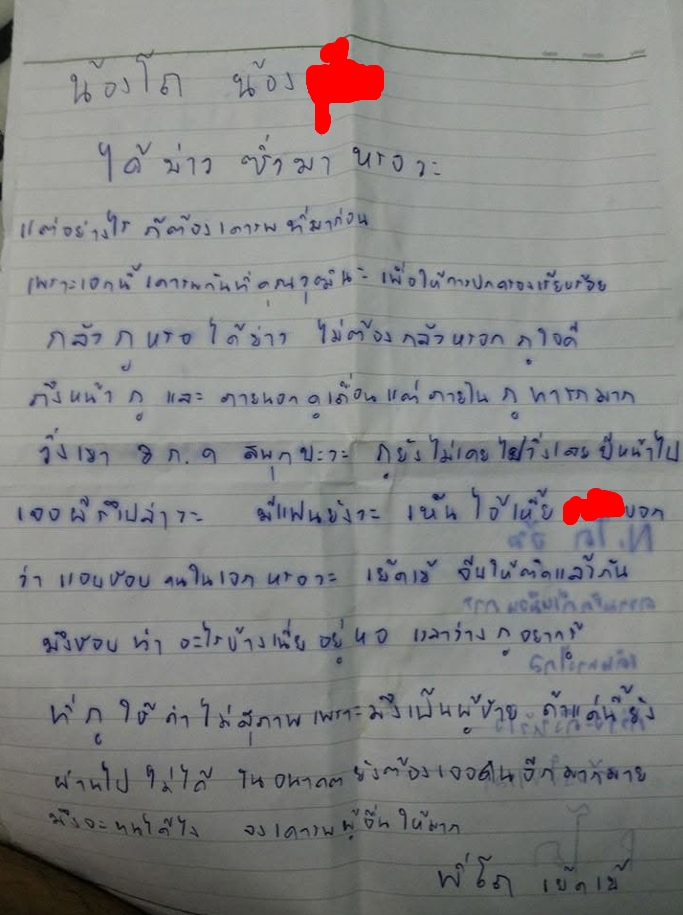 น้องโถ น้อง
ได้ข่าว ซิ่วมา หรอวะ
แต่อย่างไร ก็ต้องเคารพ ที่มาก่อน
เพราะเอกนี้ เคารพกันที่คุณวุฒินะ เพื่อให้การปกครองเรียบร้อย
กลัว กู หรอ ได้ข่าว ไม่ต้อง กลัวหรอก กูใจดี
ถึงหน้า กู และ ภายนอก ดูเถื่อน แต่ ภายใน กู ทารกมาก
วิ่งเขา ม.ก.ค สนุกปะวะ กูยังไม่เคย ไปวิ่งเลย ปีหน้าไป
เจอผีรึเปล่าวะ มีแฟนยังวะ เห็น ไอ้เหี้ย บอก
ว่า แอบชอบ คนในเอก หรอวะ เย็ดเข้ จีบให้ติดแล้วกัน
มึงชอบ ทำ อะไรบ้างเนี่ย อยู่ หอ เวลาว่าง กูอยากรู้
ที่ กู ใช้ คำ ไม่สุภาพ เพราะมึงเป็นผู้ชาย ถ้าแค่นี้ยัง
ผ่านไป ไม่ได้ ในอนาคตยังต้องเจอคนอีกมากมาย
มึงจะทนได้ไง จงเคารพผู้อื่น ให้มาก
พี่โถ เย็ดเข้